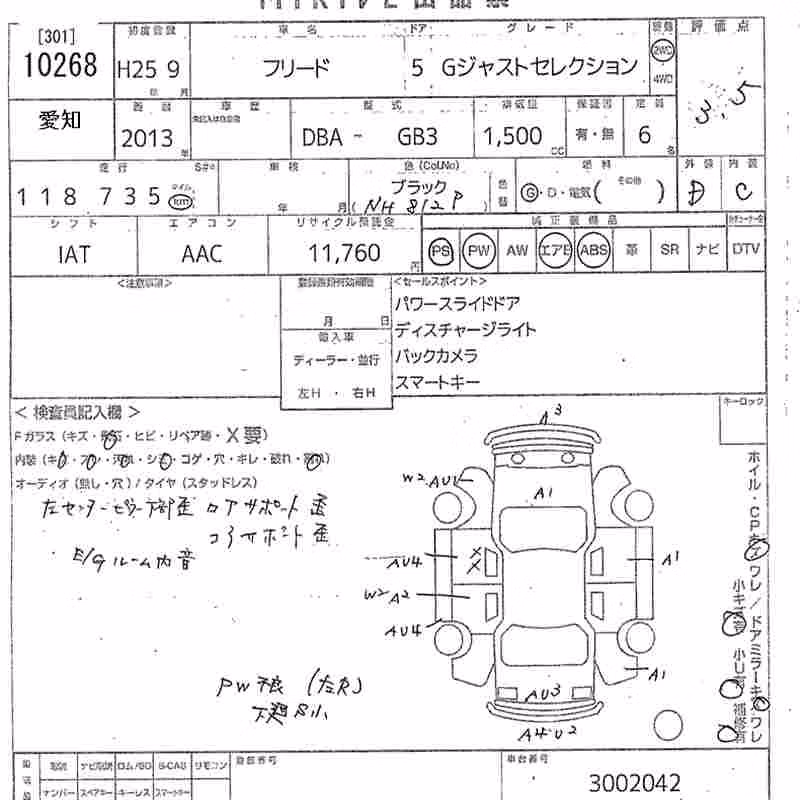 [301]
10268
初度登録
車名
ドア
グレード
評価点
H25 9
年 月
フリード
5 Gジャストセレクション
2WD
4WD
3.5
愛知
車歴
型式
排気量
保証書
定員
2013
年
DBA - GB3
1,500
CC
有・無
6
名
走行
車検
色(Col.No)
燃料
外装
内装
118 735
マイル
km
年 月
ブラック
(NH 812P)
色替
G・D・電気(その他)
D
C
シフト
エアコン
リサイクル預託金
純正装備品
IAT
AAC
11,760
円
PS
PW
AW
エアB
ABS
革
SR
ナビ
DTV
<注意事項>
月 日
輸入車
ディーラー・並行
左H ・ 右H
<セールスポイント>
パワースライドドア
ディスチャージライト
バックカメラ
スマートキー
キーロック
<検査員記入欄>
Fガラス(キズ・飛石・ヒビ・リペア跡・X要)
オーディオ(無し・穴)/タイヤ(スタッドレス)
左センターピラー下部歪 コアサポート歪
コアサポート歪
E/Gルーム内音
PW不良(左R)
A3
W2 AU1
A1
AU4
XX
A1
W2 A2
AU4
A1
AU3
A4 U2
ナンバー
スペアキー
キーレス
スマートキー
リモコン
登録番号
車台番号
3002042